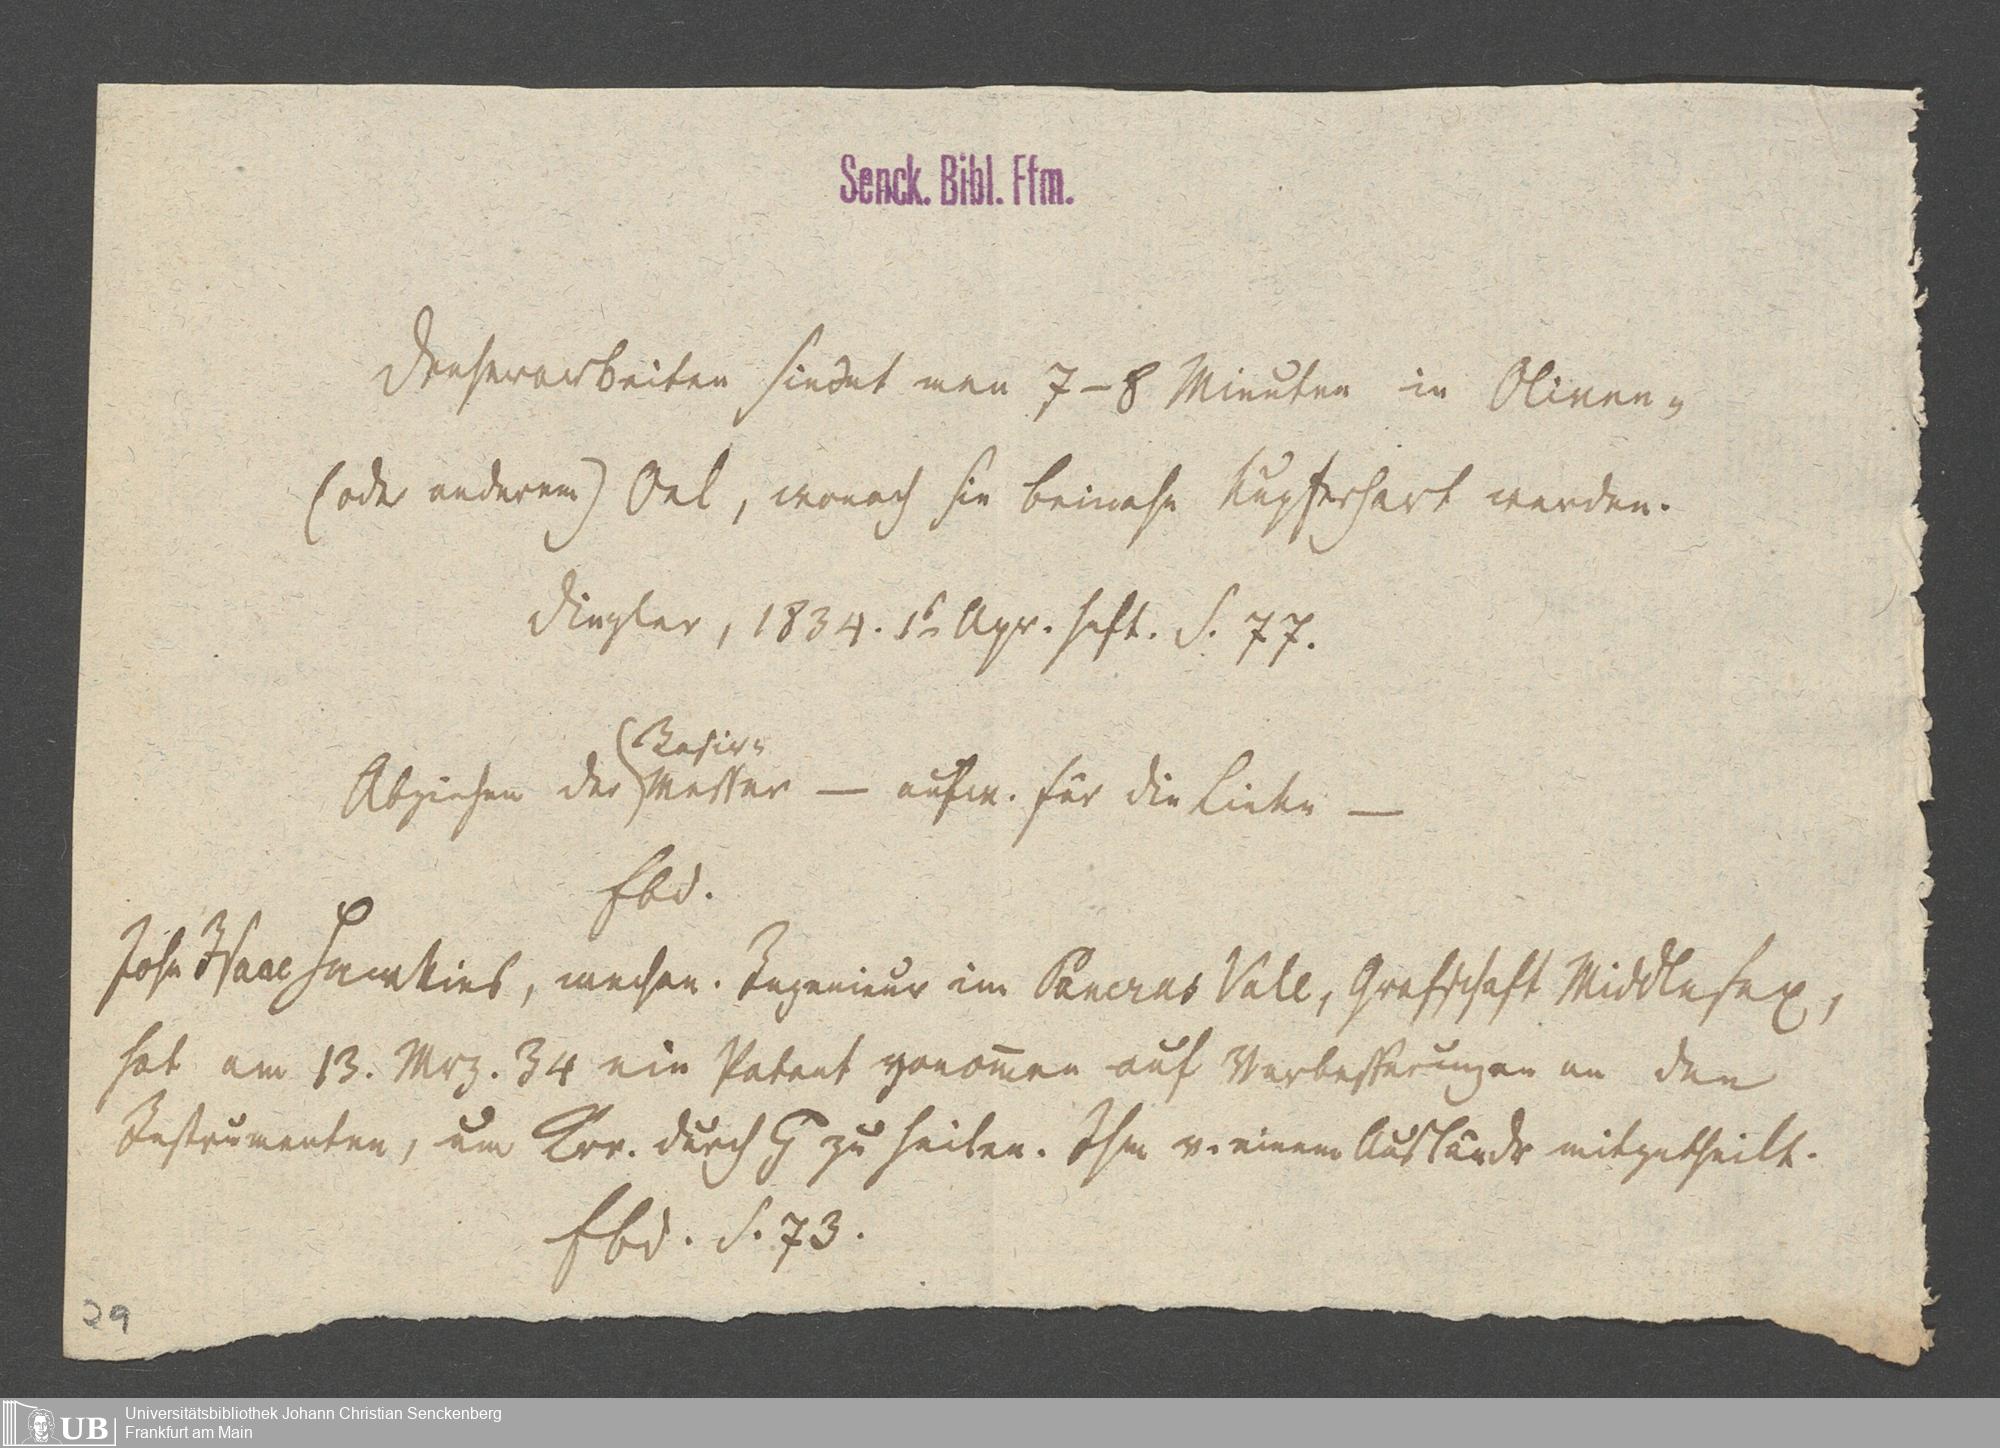 Senck. Bibl. Ffm.
Drechslerarbeiten siedet man 7–8 Minuten in Oliven-
(oder anderem) Oel, wonach sie beinahe kupferhart werden.
Dingler, 1834. 1s Apr. heft. S. 77.
Rasir-
Abziehen der Messer — aufm. für die —
Ebd.
John Isaac Hawkins, mechan. Ingenieur im Pancras Vale, Grafschaft Middlesex,
hat am 13. Mrz. 34 ein Patent genom̅en auf Verbesserungen an den
Instrumenten, um durch zu heilen. Ihm v. einem Ausländr mitgetheilt.
Ebd. S. 73.
29
UB
Universitätsbibliothek Johann Christian Senckenberg
Frankfurt am Main